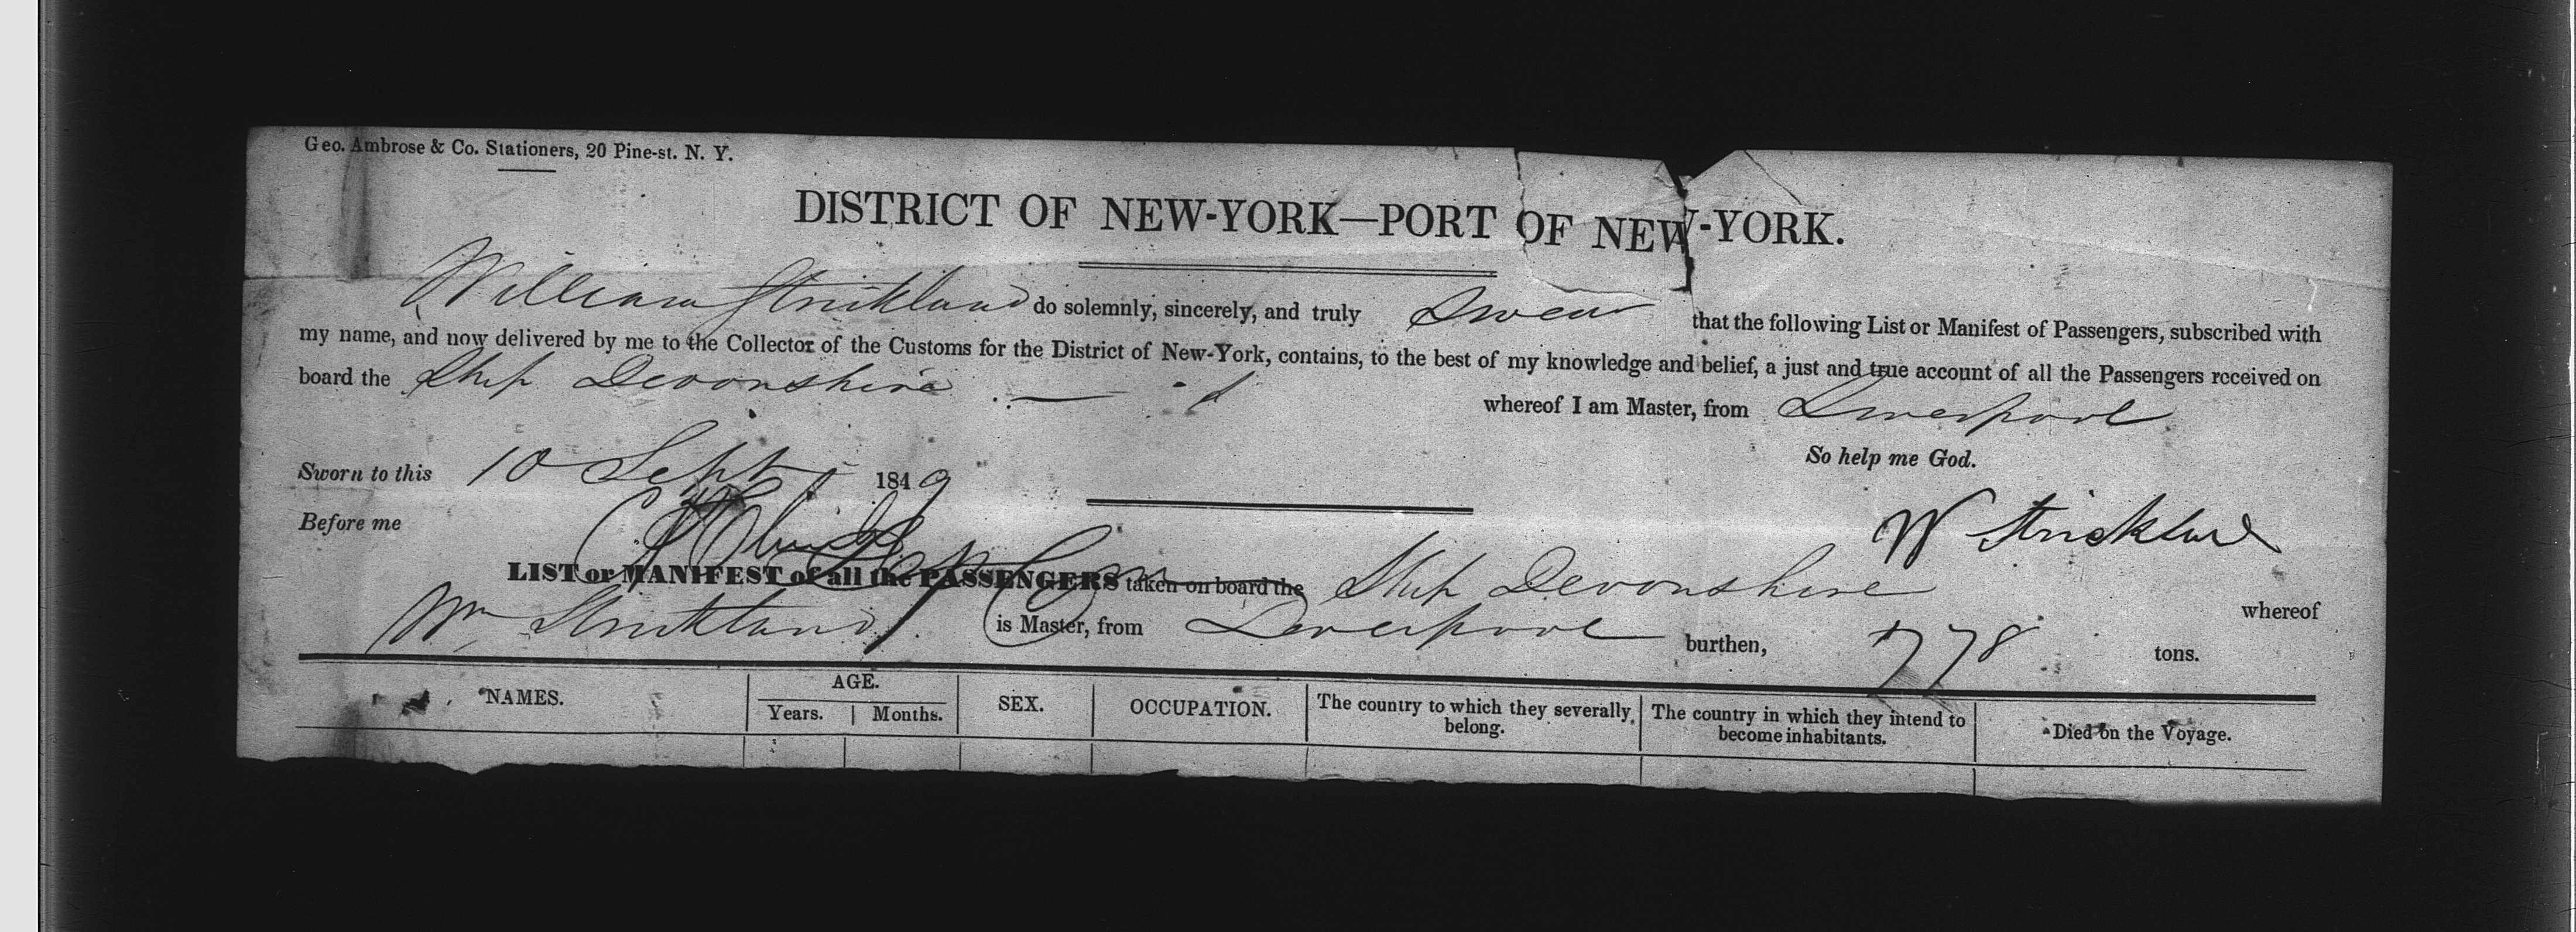 Geo. Ambrose & Co. Stationers, 20 Pine-st. N. Y.
DISTRICT OF NEW-YORK—PORT OF NEW-YORK.
William Strickland do solemnly, sincerely, and truly Swear that the following List or Manifest of Passengers, subscribed with
my name, and now delivered by me to the Collector of the Customs for the District of New-York, contains, to the best of my knowledge and belief, a just and true account of all the Passengers received on
board the Ship Devonshire whereof I am Master, from Liverpool
So help me God.
Sworn to this 10 Sept 1849
W Strickland
Before me
LIST or MANIFEST of all the PASSENGERS taken on board the Ship Devonshire whereof
Wm Strickland is Master, from Liverpool burthen, 778 tons.
NAMES. AGE. SEX. OCCUPATION. The country to which they severally belong. The country in which they intend to become inhabitants. Died on the Voyage.
Years. Months.